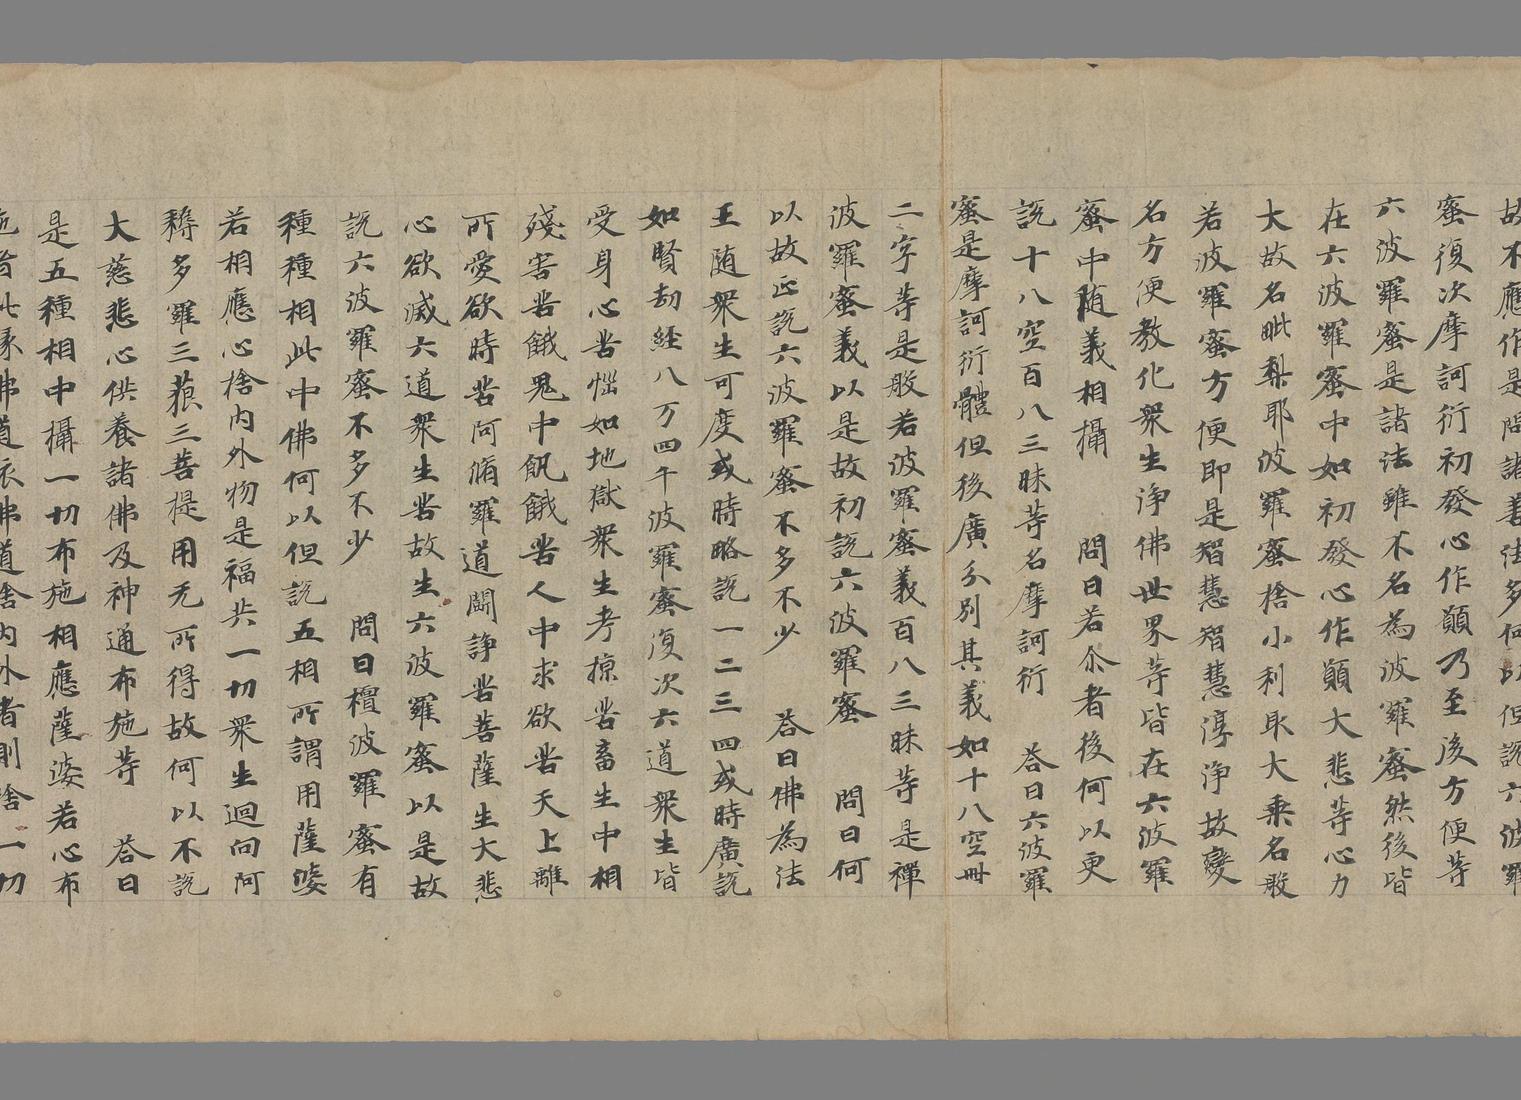 故不應作是問諸善法多何以但說六波羅
蜜復次摩訶衍初發心作願乃至後方便等
六波羅蜜是諸法雖不名為波羅蜜然後皆
在六波羅蜜中如初發心作願大悲等心力
大故名毗梨耶波羅蜜捨小利取大乘名般
若波羅蜜方便即是智慧智慧淳淨故變
名方便教化衆生淨佛世界等皆在六波羅
蜜中随義相攝　問曰若尒者後何以更
說十八空百八三昧等名摩訶衍　荅曰六波羅
蜜是摩訶衍體但後廣分別其義如十八空卌
二字等是般若波羅蜜義百八三昧等是禪
波羅蜜義以是故初說六波羅蜜　問曰何
以故正說六波羅蜜不多不少　荅曰佛為法
王随衆生可度或時略說一二三四或時廣說
如賢劫經八万四千波羅蜜復次六道衆生皆
受身心苦惱如地獄衆生考掠苦畜生中相
殘害苦餓鬼中飢餓苦人中求欲苦天上離
所愛欲時苦阿脩羅道鬪諍苦菩薩生大悲
心欲滅六道衆生苦故生六波羅蜜以是故
說六波羅蜜不多不少　問曰檀波羅蜜有
種種相此中佛何以但說五相所謂用薩婆
若相應心捨内外物是福共一切衆生迴向阿
耨多羅三藐三菩提用无所得故何以不說
大慈悲心供養諸佛及神通布施等　荅曰
是五種相中攝一切布施相應薩婆若心布
施者此緣佛道依佛道捨内外者則捨一切